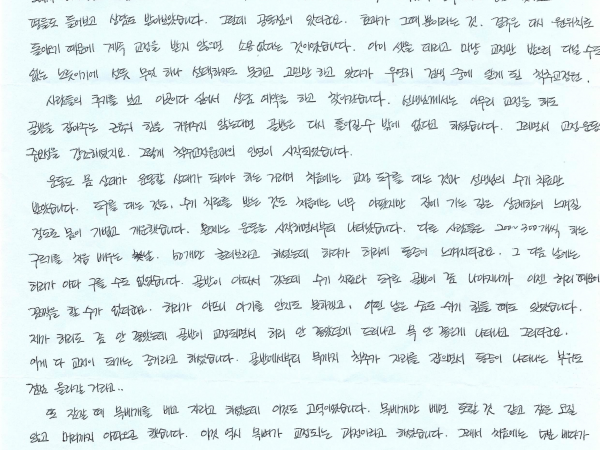 평들도 들어보고 상담도 받아보았습니다. 그런데 공통점이 있더군요. 효과가 그때 뿐이라는 것. 결국은 다시 원위치로
돌아오기 때문에 계속 교정을 받지 않으면 소용없다는 것이었습니다. 아이 셋을 데리고 마냥 교정만 받으러 다닐 수도
없는 노릇이기에 선뜻 무언 하나 선택하지도 못하고 고민만 하고 있다가 우연히 검색 중에 알게 된 척추교정원.
사람들의 후기를 보고 이곳이다 싶어서 상담 예약을 하고 찾아갔습니다. 선생님께서는 아무리 교정을 해도
골반을 잡아주는 근육의 힘을 키워주지 않는다면 골반은 다시 틀어질 수 밖에 없다고 하셨습니다. 그러면서 교정운동의
중요성을 강조하셨지요. 그렇게 척추교정원과의 인연이 시작되었습니다.
운동도 몸 상태가 운동할 상태가 되어야 하는 거라며 처음에는 교정 도구를 대는 것과 선생님의 수기 치료만
받았습니다. 도구를 대는 것도, 수기 치료를 받는 것도 처음에는 너무 아팠지만 집에 가는 길은 상쾌함이 느껴질
정도로 몸이 가볍고 개운했습니다. 문제는 운동을 시작하면서부터 나타났습니다. 다른 사람들은 200~300개씩 하는
구르기를 처음 배우는 날. 60개만 굴러보라고 하셨는데 하다가 허리에 통증이 느껴지더군요. 그 다음 날에는
허리가 아파 구를 수도 없었습니다. 골반이 아파서 갔는데 수기 치료와 도구로 골반이 좀 나아지니까 이젠 허리 때문에
꼼짝을 할 수가 없더군요. 허리가 아프니 아기를 안지도 못하겠고, 어떤 날은 숨도 쉬기 힘들 때도 있었습니다.
제가 허리도 좀 안 좋았는데 골반이 교정되면서 허리 안 좋았던게 드러나고 목 안 좋은게 나타나고 그러더군요.
이게 다 교정이 되가는 증거라고 하셨습니다. 골반에서부터 목까지 척추가 자리를 잡으면서 통증이 나타나는 부위도
점점 올라갈 거라고..
또 잠잘 때 목베개를 베고 자라고 하셨는데 이것도 고역이었습니다. 목베개만 베면 토할 것 같고 잠은 오질
않고 머리까지 아파오곤 했습니다. 이것 역시 목뼈가 교정되는 과정이라고 하셨습니다. 그래서 처음에는 베다가